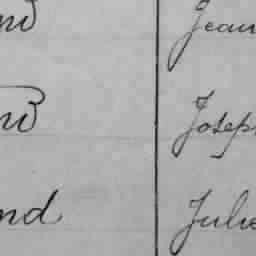 nd Jean
nd Joseph
nd Julie